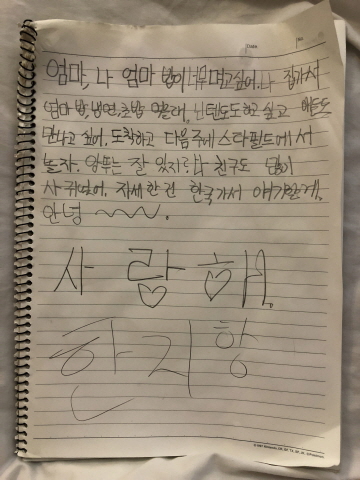 엄마, 나 엄마 밥이 너무 먹고싶어. 나 집가서
엄마 밥, 냉면, 초밥 먹을래, 닌텐도도 하고 싶고 애들도
만나고 싶어. 도착하고 다음주에 스타필드에서
놀자. 앙뚜는 잘 있지? 나 친구도 많이
사귀었어. 자세한건 한국가서 얘기할게.
안녕 ~~~.
사랑해.